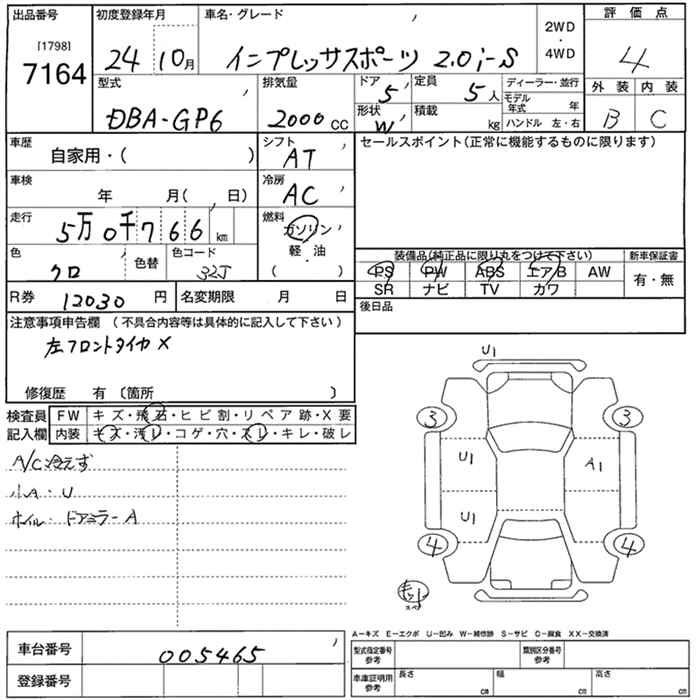 出品番号 初度登録年月 車名・グレード 2WD・4WD 評価点
[1798]
7164 24 10月 インプレッサスポーツ 2.0i-S 4
型式 排気量 ドア 定員 ディーラー・並行 外装 内装
5 5人 モデル年式 年 B C
DBA-GP6 2000cc 形状 積載 ハンドル 左・右
W kg
車歴 シフト セールスポイント(正常に機能するものに限ります)
自家用・( ) AT
車検 冷房
年 月( 日) AC
走行 燃料
5万0千766km ガソリン
軽・油
( )
色 色替 色コード 装備品(純正品に限り丸をつけて下さい) 新車保証書
クロ 32J PS PW ABS エアB AW 有・無
SR ナビ TV カワ
R券 12030円 名変期限 月 日 後日品
注意事項申告欄 (不具合内容等は具体的に記入して下さい)
左フロントタイヤ X
修復歴 有 〔箇所 〕
検査員 FW キズ・飛石・ヒビ割・リペア跡・X要
記入欄 内装 キズ・汚レ・コゲ・穴・スレ・キレ・破レ
A/C冷えず
小A・U
ホイル・ドアミラーA
U1
3 3
U1 A1
U1
4 4
A-キズ E-エクボ U-凹み W-補修跡 S-サビ C-腐食 XX-交換済
車台番号 005465 型式指定番号 参考 類別区分番号 参考
登録番号 車庫証明用 参考 長さ cm 幅 cm 高さ cm